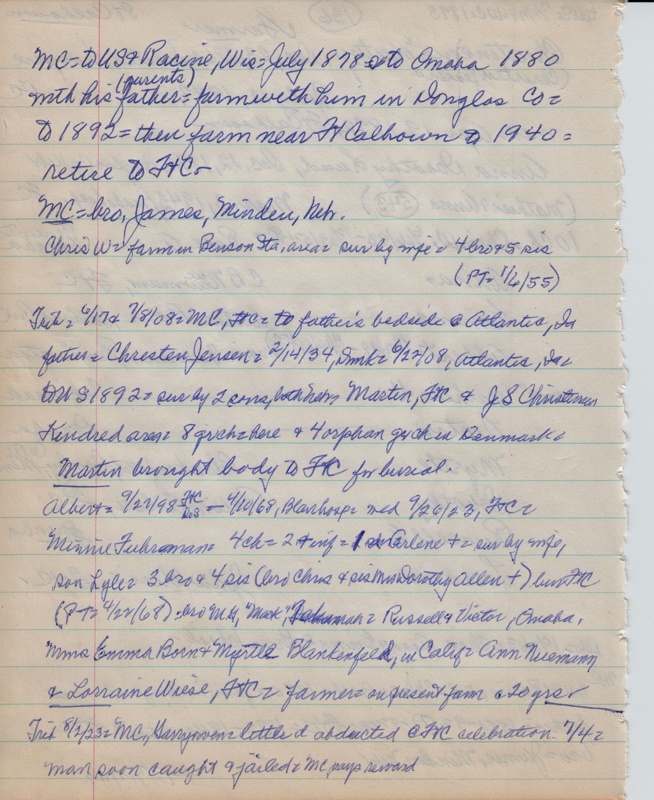 MC = to US & Racine, Wis = July 1878 = to Omaha 1880
(parents)
with his father = farm with him in Douglas Co =
to 1892 = then farm near Ft Calhoun to 1940 =
retire to FtC -
MC = bro, James, Minden, Neb.
Chris W = farm in Benson Sta, area = sur by wife = 4 bro & 5 sis
(PT = 7/6/55)
Trib = 6/17 & 7/8/08 = MC, FtC = to father's bedside @ Atlantic, Ia
father = Chresten Jensen = 2/14/34, Dmk = 6/22/08, Atlantic, Ia =
to US 1892 = sur by 2 sons, both here, Martin, FtC & J S Christensen
Kindred area = 8 grch = here & 4 orphan grch in Denmark =
Martin brought body to FtC for burial.
Albert = 9/27/98 FtC - 4/10/68, Blair hosp = med 9/26/23, FtC =
Minnie Fuhrman = 4 ch = 2 + inf = 1 Arlene + = sur by wife,
son Lyle = 3 bro & 4 sis (bro Chris & sis Mrs Dorothy Allen +) bur FtC
(PT = 4/22/68) = bro M.C, "Mack", = Russell & Victor, Omaha,
Mmes Emma Born & Myrtle Blankenfeld, in Calif = Ann Niemann
& Lorraine Wiese, FtC = farmer = on present farm @ 20 yrs -
Trib 8/2/23 = MC, = little d abducted @ FtC celebration 7/4 =
man soon caught & jailed = MC pays reward